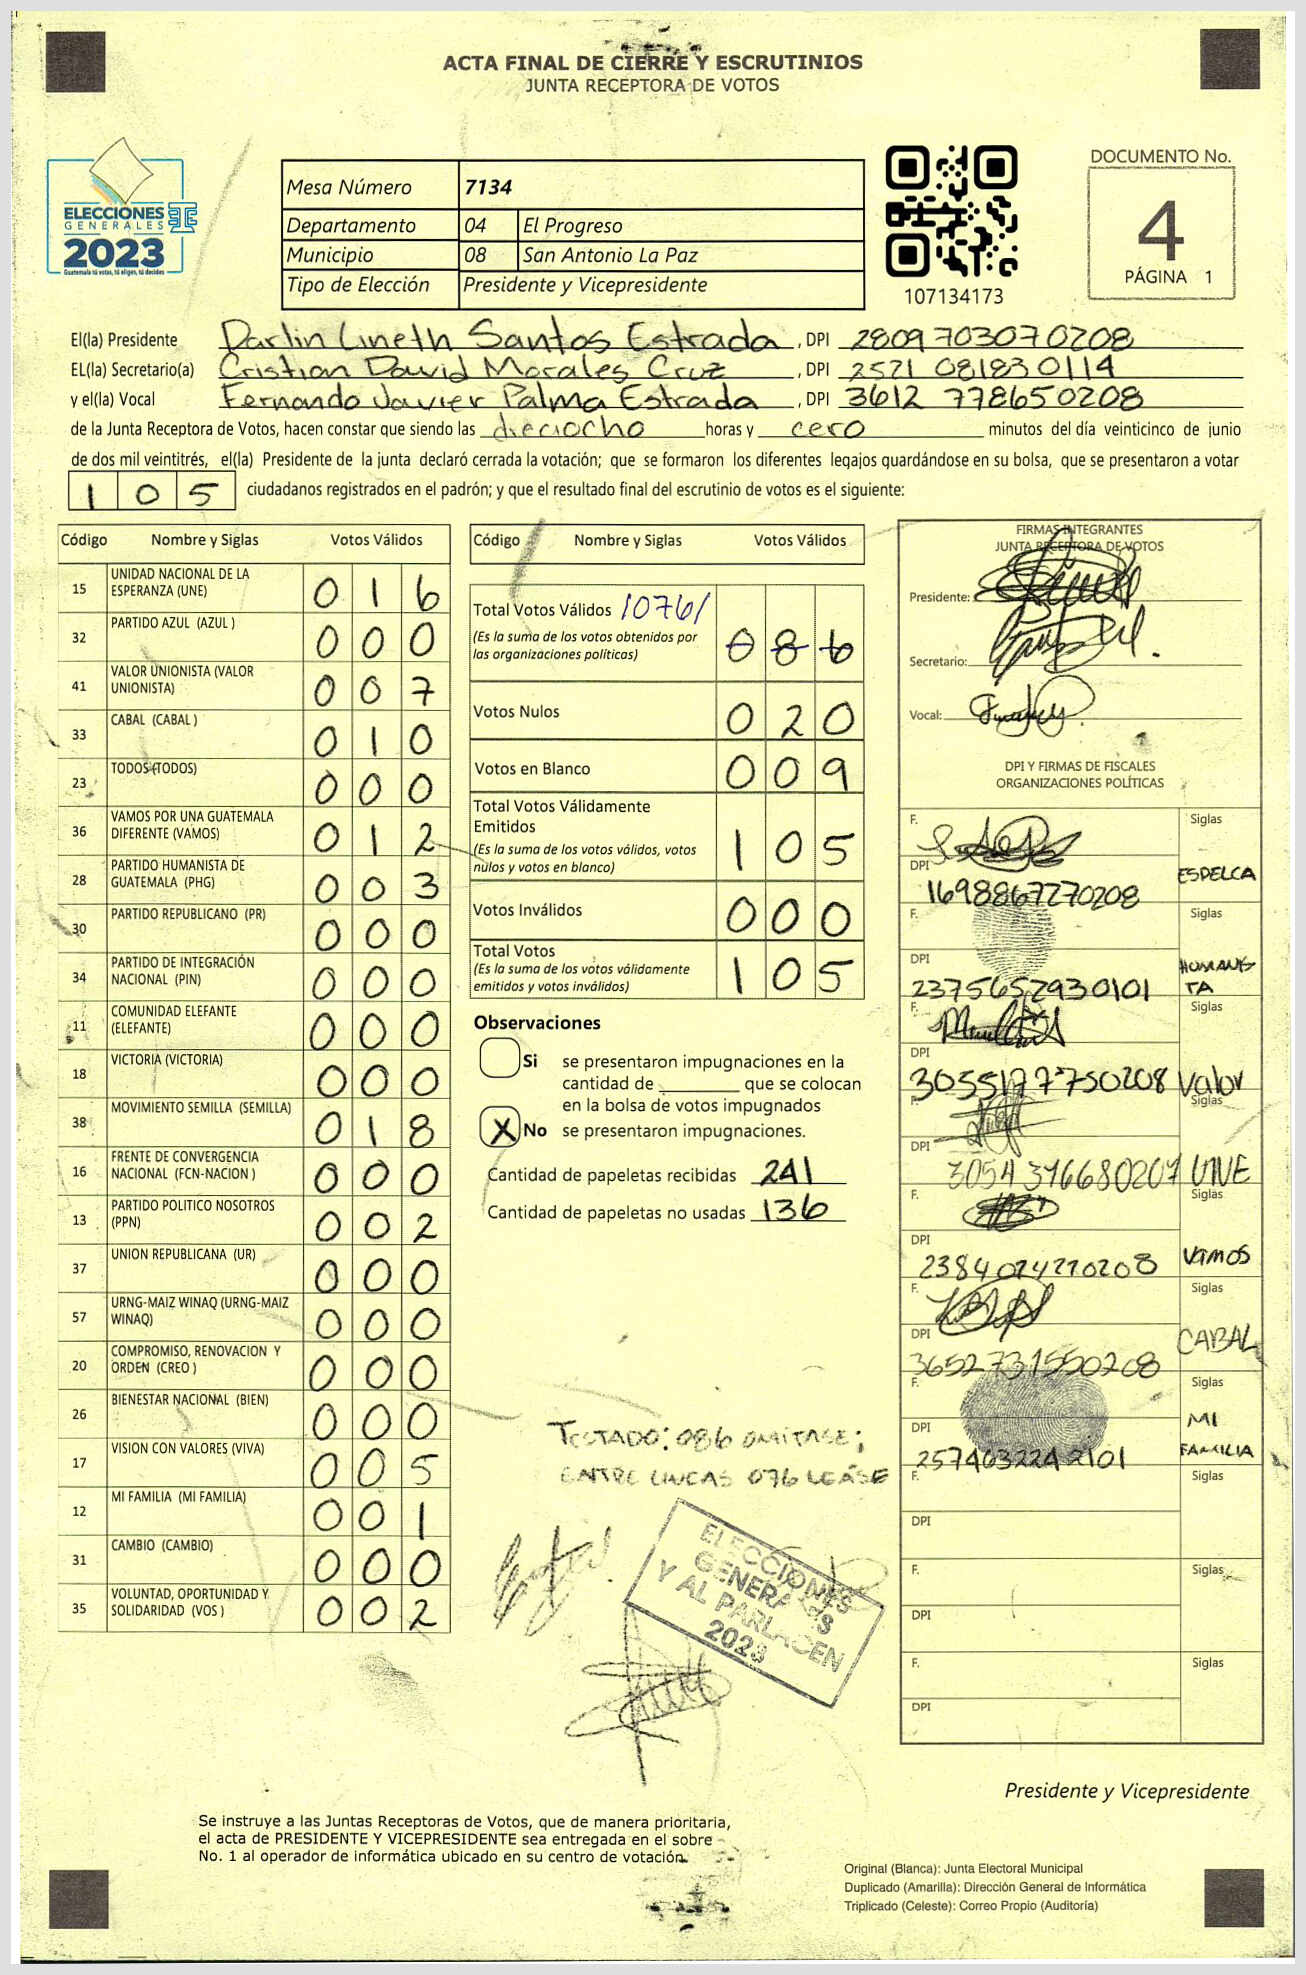 ACTA FINAL DE CIERRE Y ESCRUTINIOS
JUNTA RECEPTORA DE VOTOS
ELECCIONES
GENERALES
2023
Guatemala tú votas, tú eliges, tú decides
Mesa Número 7134
Departamento 04 El Progreso
Municipio 08 San Antonio La Paz
Tipo de Elección Presidente y Vicepresidente
107134173
DOCUMENTO No.
4
PÁGINA 1
El(la) Presidente Darlin Lineth Santos Estrada, DPI 2809703070208
EL(la) Secretario(a) Cristian David Morales Cruz, DPI 2521 081830114
y el(la) Vocal Fernando Javier Palma Estrada, DPI 3612 778650208
de la Junta Receptora de Votos, hacen constar que siendo las dieciocho horas y cero minutos del día veinticinco de junio
de dos mil veintitrés, el(la) Presidente de la junta declaró cerrada la votación; que se formaron los diferentes legajos quardándose en su bolsa, que se presentaron a votar
105 ciudadanos registrados en el padrón; y que el resultado final del escrutinio de votos es el siguiente:
Código Nombre y Siglas Votos Válidos
15 UNIDAD NACIONAL DE LA ESPERANZA (UNE) 016
32 PARTIDO AZUL (AZUL ) 000
41 VALOR UNIONISTA (VALOR UNIONISTA) 007
33 CABAL (CABAL ) 010
23 TODOS (TODOS) 000
36 VAMOS POR UNA GUATEMALA DIFERENTE (VAMOS) 012
28 PARTIDO HUMANISTA DE GUATEMALA (PHG) 003
30 PARTIDO REPUBLICANO (PR) 000
34 PARTIDO DE INTEGRACIÓN NACIONAL (PIN) 000
11 COMUNIDAD ELEFANTE (ELEFANTE) 000
18 VICTORIA (VICTORIA) 000
38 MOVIMIENTO SEMILLA (SEMILLA) 018
16 FRENTE DE CONVERGENCIA NACIONAL (FCN-NACION ) 000
13 PARTIDO POLITICO NOSOTROS (PPN) 002
37 UNION REPUBLICANA (UR) 000
57 URNG-MAIZ WINAQ (URNG-MAIZ WINAQ) 000
20 COMPROMISO, RENOVACION Y ORDEN (CREO ) 000
26 BIENESTAR NACIONAL (BIEN) 000
17 VISION CON VALORES (VIVA) 005
12 MI FAMILIA (MI FAMILIA) 001
31 CAMBIO (CAMBIO) 000
35 VOLUNTAD, OPORTUNIDAD Y SOLIDARIDAD (VOS ) 002
Código Nombre y Siglas Votos Válidos
Total Votos Válidos /076/
(Es la suma de los votos obtenidos por
las organizaciones políticas) 086
Votos Nulos 020
Votos en Blanco 009
Total Votos Válidamente
Emitidos
(Es la suma de los votos válidos, votos
nulos y votos en blanco) 105
Votos Inválidos 000
Total Votos
(Es la suma de los votos válidamente
emitidos y votos inválidos) 105
Observaciones
Si se presentaron impugnaciones en la
cantidad de ________ que se colocan
en la bolsa de votos impugnados
X No se presentaron impugnaciones.
Cantidad de papeletas recibidas 241
Cantidad de papeletas no usadas 136
TESTADO: 086 OMITASE;
ENTRE LINEAS 076 LEASE
ELECCIONES
GENERALES
Y AL PARLACEN
2023
FIRMAS INTEGRANTES
JUNTA RECEPTORA DE VOTOS
Presidente:
Secretario:
Vocal:
DPI Y FIRMAS DE FISCALES
ORGANIZACIONES POLÍTICAS
F. Siglas
DPI 1698867270208 ESPELCA
F. Siglas
DPI 2375652930101 HUMANISTA
F. Siglas
DPI 3055177750208 Valor
F. Siglas
DPI 3054376680207 UNE
F. Siglas
DPI 2384024270208 VAMOS
F. Siglas
DPI 3652731550208 CABAL
F. Siglas
DPI 2574032242101 MI FAMILIA
F. Siglas
DPI
F. Siglas
DPI
F. Siglas
DPI
Presidente y Vicepresidente
Se instruye a las Juntas Receptoras de Votos, que de manera prioritaria,
el acta de PRESIDENTE Y VICEPRESIDENTE sea entregada en el sobre
No. 1 al operador de informática ubicado en su centro de votación.
Original (Blanca): Junta Electoral Municipal
Duplicado (Amarilla): Dirección General de Informática
Triplicado (Celeste): Correo Propio (Auditoría)